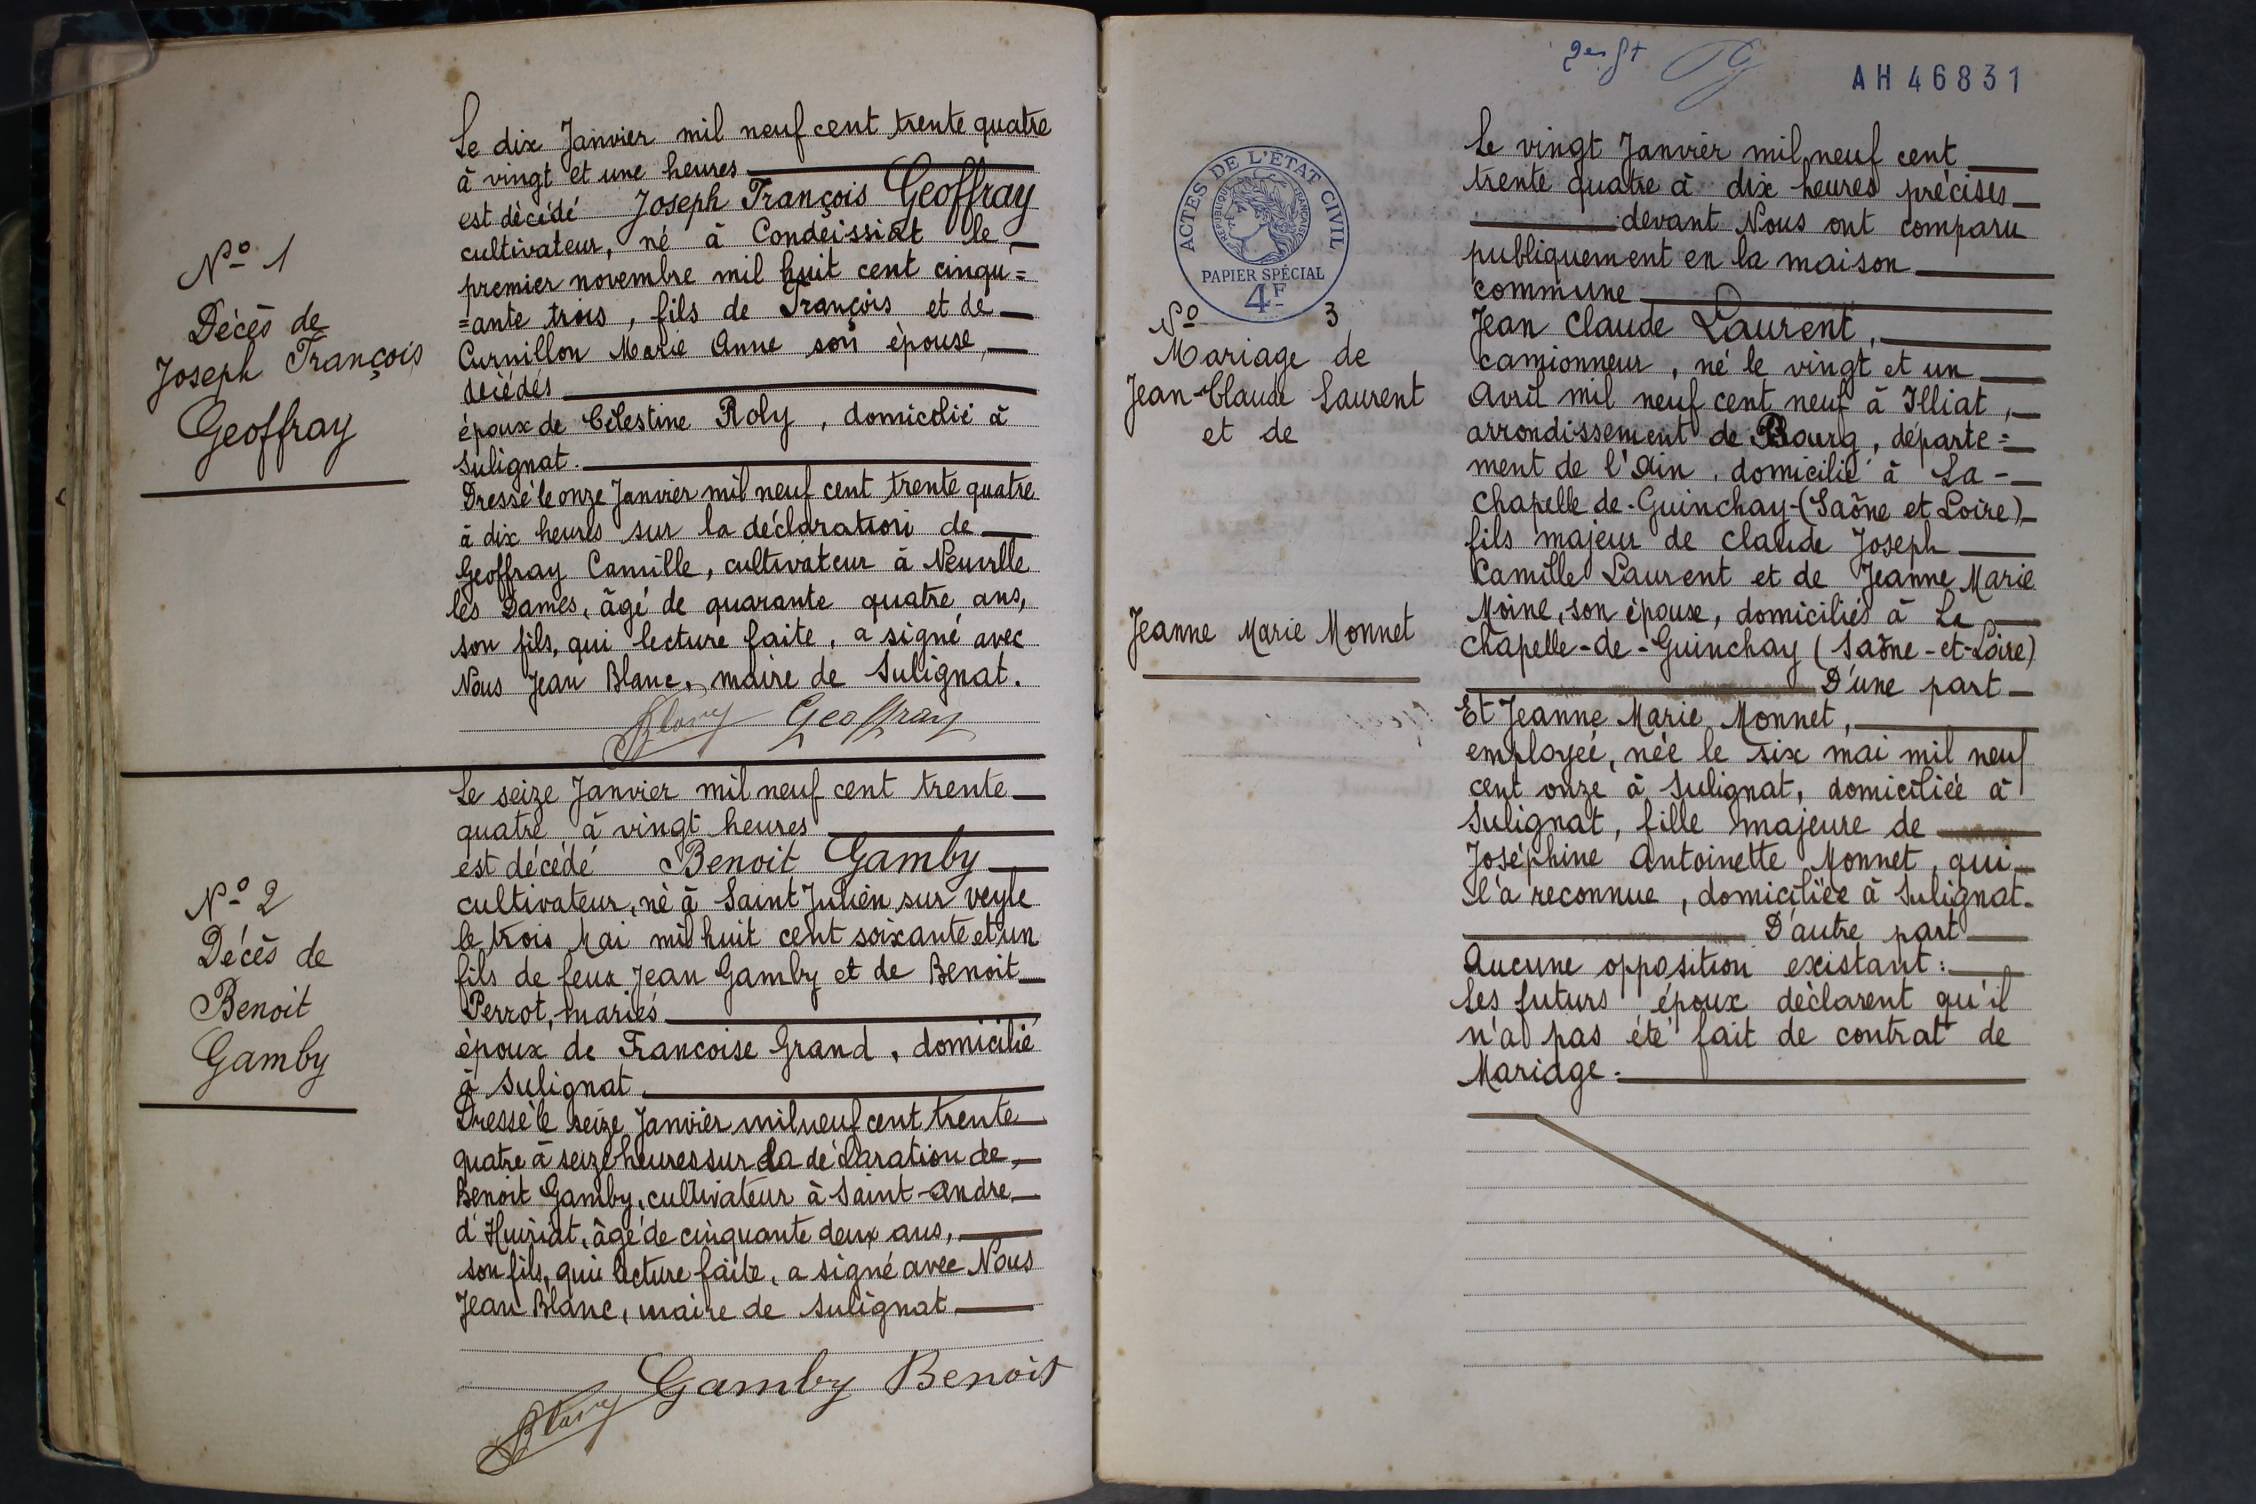 Le dix Janvier mil neuf cent trente quatre
à vingt et une heures
est décédé Joseph François Geoffray
cultivateur, né à Condeissiat le
premier novembre mil huit cent cinqu=
=ante trois, fils de François et de
Curnillon Marie Anne son épouse,
décédés
époux de Célestine Roly, domicilié à
Sulignat.
Dressé le onze Janvier mil neuf cent trente quatre
à dix heures sur la déclaration de
Geoffray Camille, cultivateur à Neuville
les Dames, âgé de quarante quatre ans,
son fils, qui lecture faite, a signé avec
Nous Jean Blanc, maire de Sulignat.
Blanc Geoffray
No 1
Décès de
Joseph François
Geoffray
Le seize Janvier mil neuf cent trente
quatre à vingt heures
est décédé Benoit Gamby
cultivateur, né à Saint Julien sur Veyle
le trois Mai mil huit cent soixante et un
fils de feux Jean Gamby et de Benoit
Perrot, mariés
époux de Francoise Grand, domicilié
à Sulignat
Dressé le seize Janvier mil neuf cent trente
quatre à seize heures sur la déclaration de
Benoit Gamby, cultivateur à Saint-Andre
d'Huiriat, âgé de cinquante deux ans,
son fils, qui lecture faite, a signé avec Nous
Jean Blanc, maire de Sulignat
Gamby Benoit
Blanc
No 2
Décès de
Benoit
Gamby
AH 46831
ACTES DE L'ÉTAT CIVIL
RÉPUBLIQUE FRANÇAISE
PAPIER SPÉCIAL
4F
No 3
Mariage de
Jean-Claude Laurent
et de
Jeanne Marie Monnet
Le vingt Janvier mil neuf cent
trente quatre à dix heures précises
devant Nous ont comparu
publiquement en la maison
commune
Jean Claude Laurent,
camionneur, né le vingt et un
Avril mil neuf cent neuf à Illiat,
arrondissement de Bourg, départe=
ment de l'Ain, domicilié à La-
Chapelle de-Guinchay-(Saône et Loire)
fils majeur de Claude Joseph
Camille Laurent et de Jeanne Marie
Moine, son épouse, domiciliés à La
Chapelle-de-Guinchay (Saône-et-Loire)
D'une part
Et Jeanne Marie Monnet,
employée, née le six mai mil neuf
cent onze à Sulignat, domiciliée à
Sulignat, fille majeure de
Joséphine Antoinette Monnet, qui
l'a reconnue, domiciliée à Sulignat.
D'autre part
Aucune opposition existant:
Les futurs époux déclarent qu'il
n'a pas été fait de contrat de
Mariage.